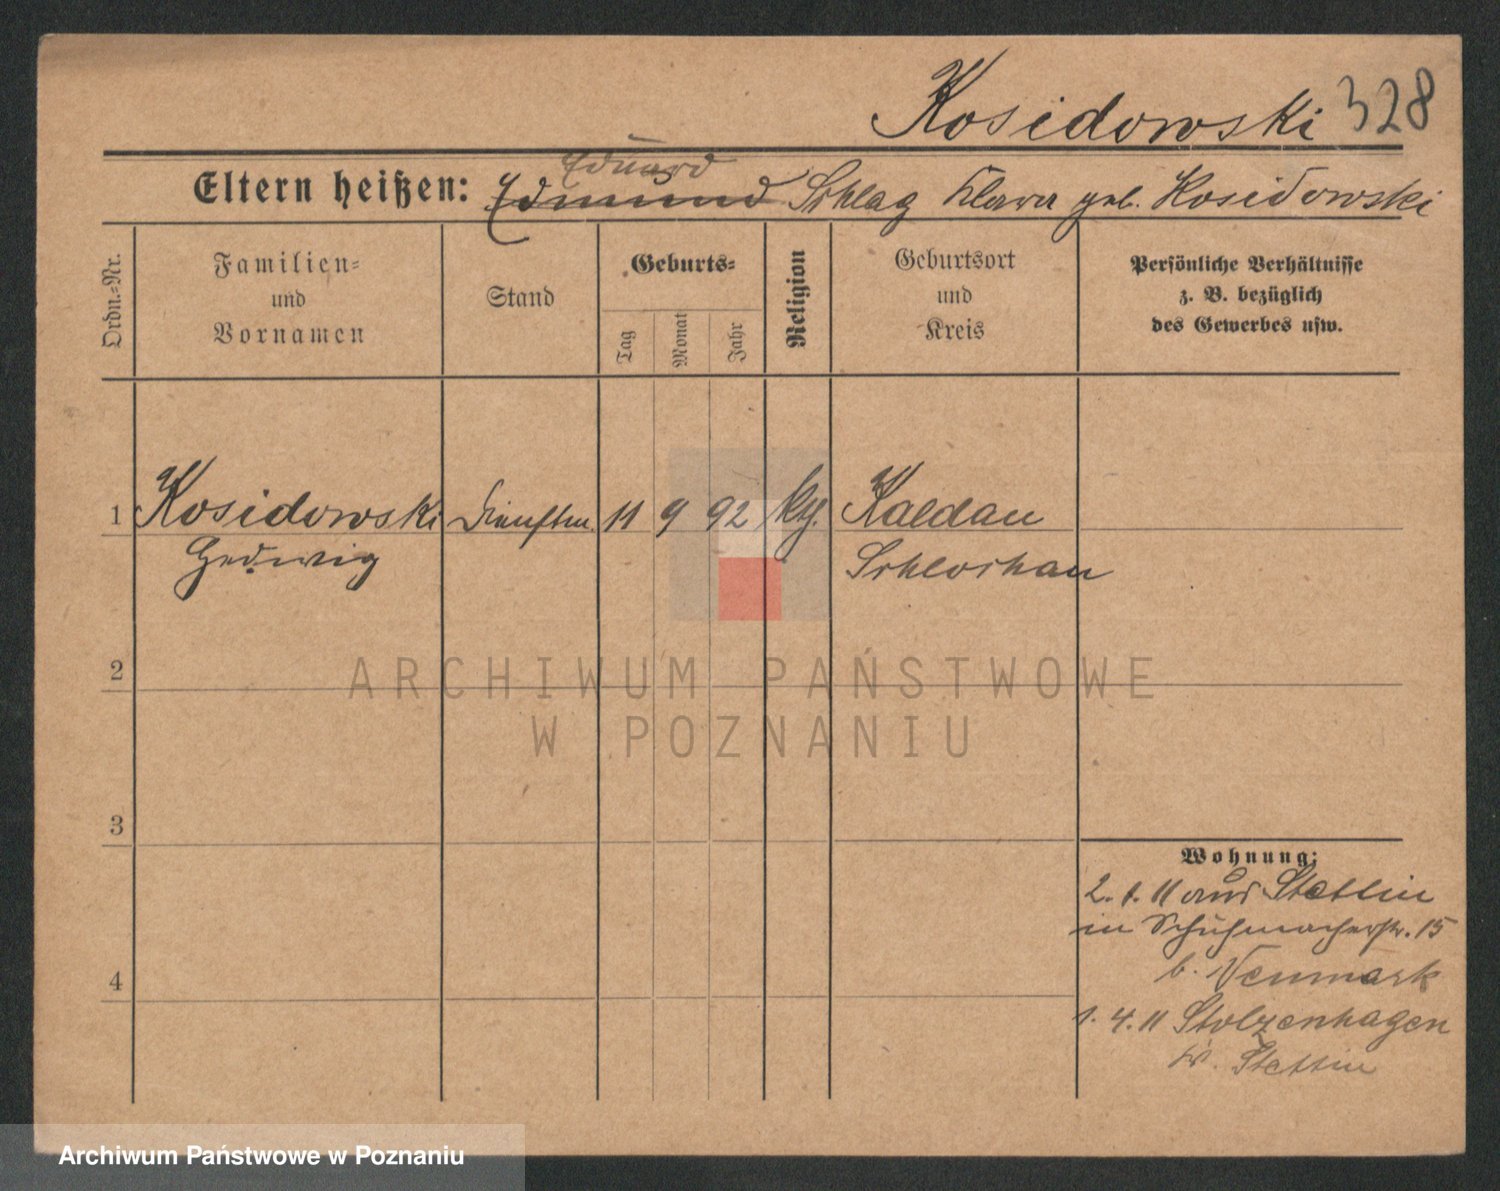 Kosidowski 328
Eduard
Eltern heißen: Edmund Schlag Klara geb. Kosidowski
Ordn.-Nr.
Familien-
und
Vornamen
Stand
Geburts-
Tag
Monat
Jahr
Religion
Geburtsort
und
Kreis
Persönliche Verhältnisse
z. B. bezüglich
des Gewerbes usw.
1 Kosidowski Dienstm. 11 9 92 Kaldau
Hedwig Schlochau
2
3
4
Wohnung:
2. 1. 11 aus Stettin
in Schuhmacherstr. 15
b. Neumark
1. 4. 11 Stolzenhagen
Kr. Stettin
ARCHIWUM PAŃSTWOWE
W POZNANIU
Archiwum Państwowe w Poznaniu